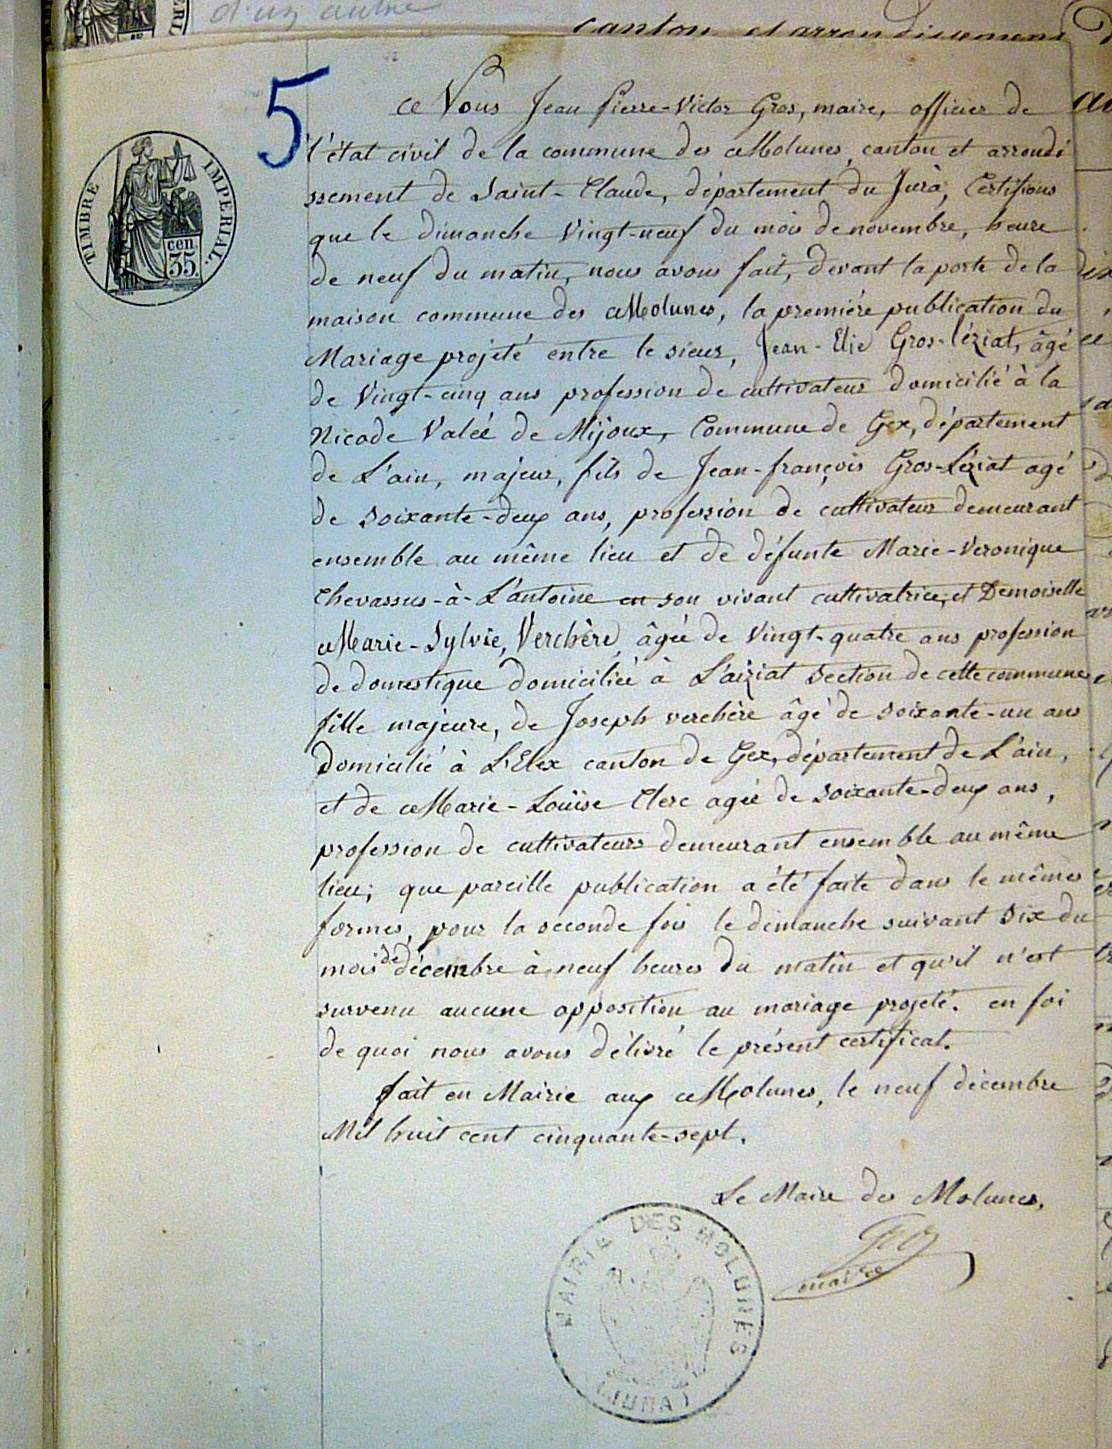 d'un autre
canton et arrondissement
5
TIMBRE IMPERIAL.
cen
35
Nous Jean Pierre-Victor Gros, maire, officier de
l'état civil de la commune des Molunes, canton et arrondi
ssement de Saint-Claude, département du Jura, Certifions
que le dimanche Vingt-neuf du mois de novembre, heure
de neuf du matin, nous avons fait, devant la porte de la
maison commune des Molunes, la première publication du
Mariage projeté entre le sieur, Jean-Elie Gros-léziat, âgé
de Vingt-cinq ans profession de cultivateur domicilié à la
Nicode Valée de Mijoux, Commune de Gex, département
de L'ain, majeur, fils de Jean-françois Gros-Léziat agé
de soixante-deux ans, profession de cultivateur demeurant
ensemble au même lieu et de défunte Marie-Veronique
Chevassus-à-L'antoine en son vivant cultivatrice, et Demoiselle
Marie-Sylvie, Verchère, âgée de Vingt-quatre ans profession
de domestique domiciliée à L'aiziat section de cette commune
fille majeure, de Joseph verchère âgé de soixante-un ans
domicilié à L'Elex canton de Gex, département de L'ain,
et de Marie-Louise Clerc agée de soixante-deux ans,
profession de cultivateurs demeurant ensemble au même
lieu; que pareille publication a été faite dans le mêmes
formes, pour la seconde fois le dimanche suivant six du
mois de décembre à neuf heures du matin et qu'il n'est
survenu aucune opposition au mariage projeté. en foi
de quoi nous avons délivré le présent certificat.
fait en Mairie aux Molunes, le neuf décembre
Mil huit cent cinquante-sept.
Le Maire des Molunes,
Gros
maire
MAIRIE DES MOLUNES
(JURA)